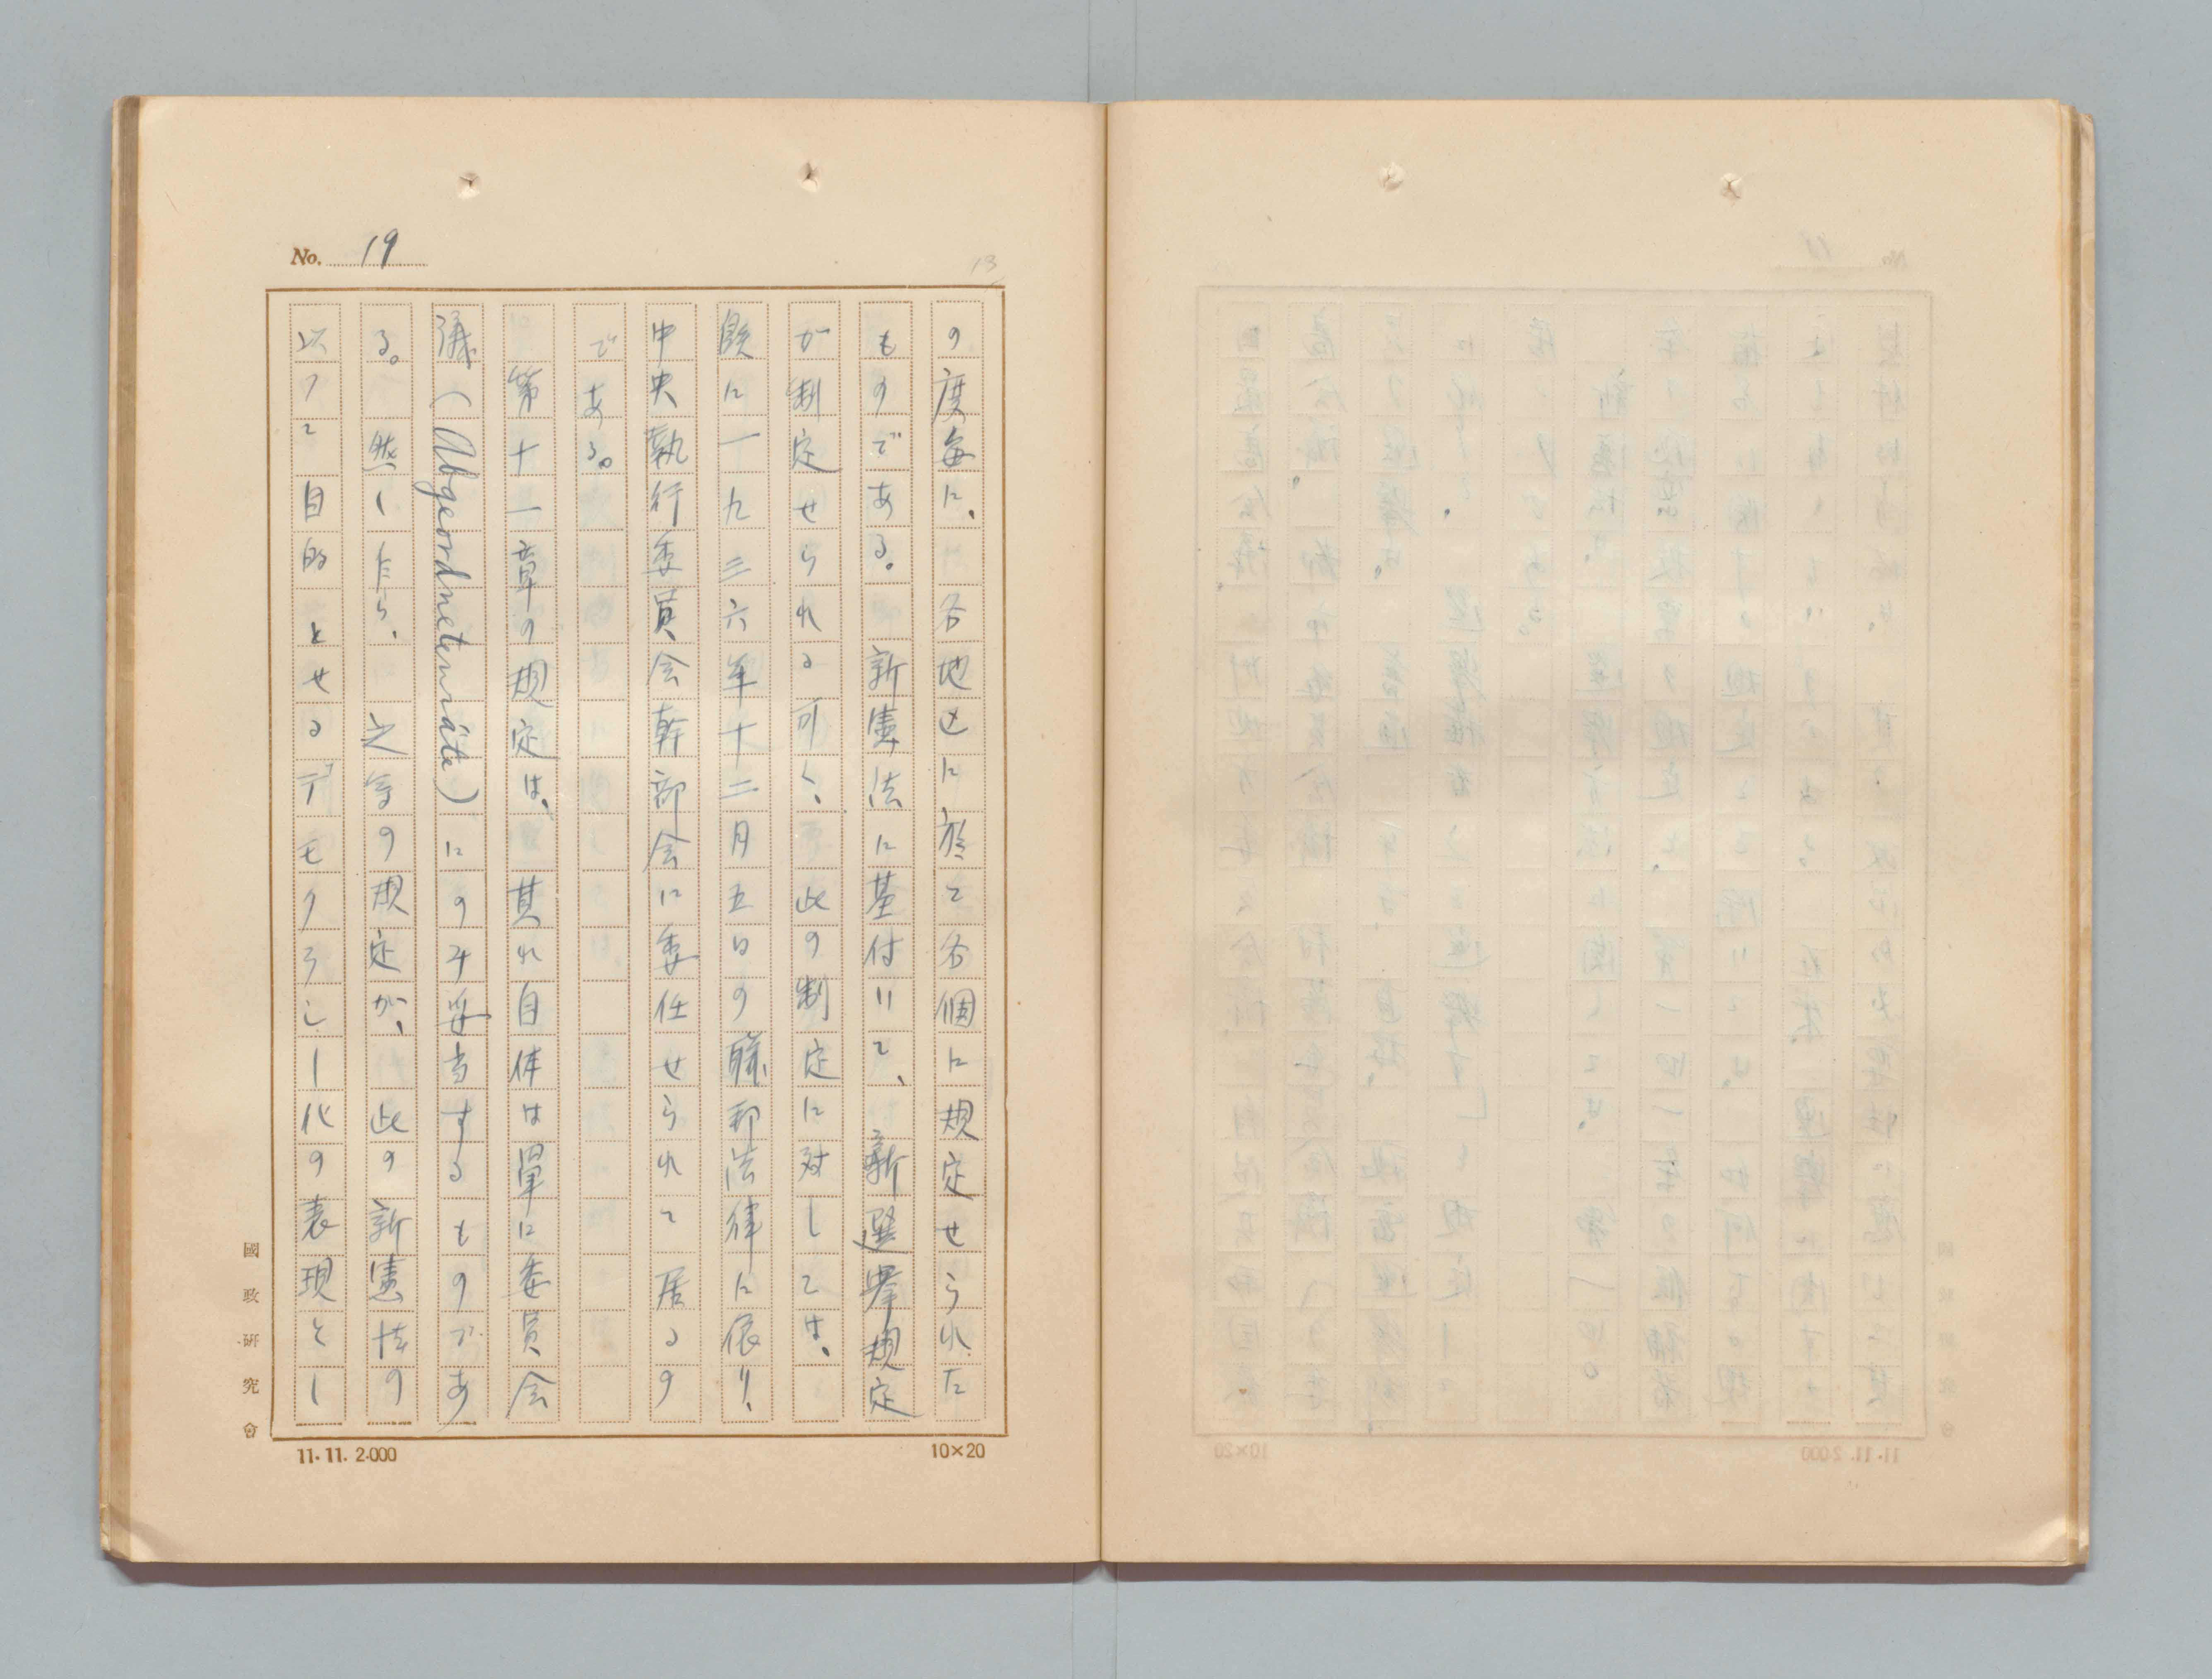 No. 19
13
の度毎に、各地区に於て各個に規定せられた
ものである。新憲法に基付いて、新選挙規定
が制定せられる可く、此の制定に対しては、
既に一九三六年十二月五日の聯邦法律に依り、
中央執行委員会幹部会に委任せられて居るの
である。
第十一章の規定は、其れ自体は単に委員会
議(Abgeordnetenräte)にのみ妥当するものであ
る。然しながら、之等の規定が、此の新憲法の
以つて目的とせるデモクラシー化の表現とし
國政研究會
11.11. 2.000
10×20